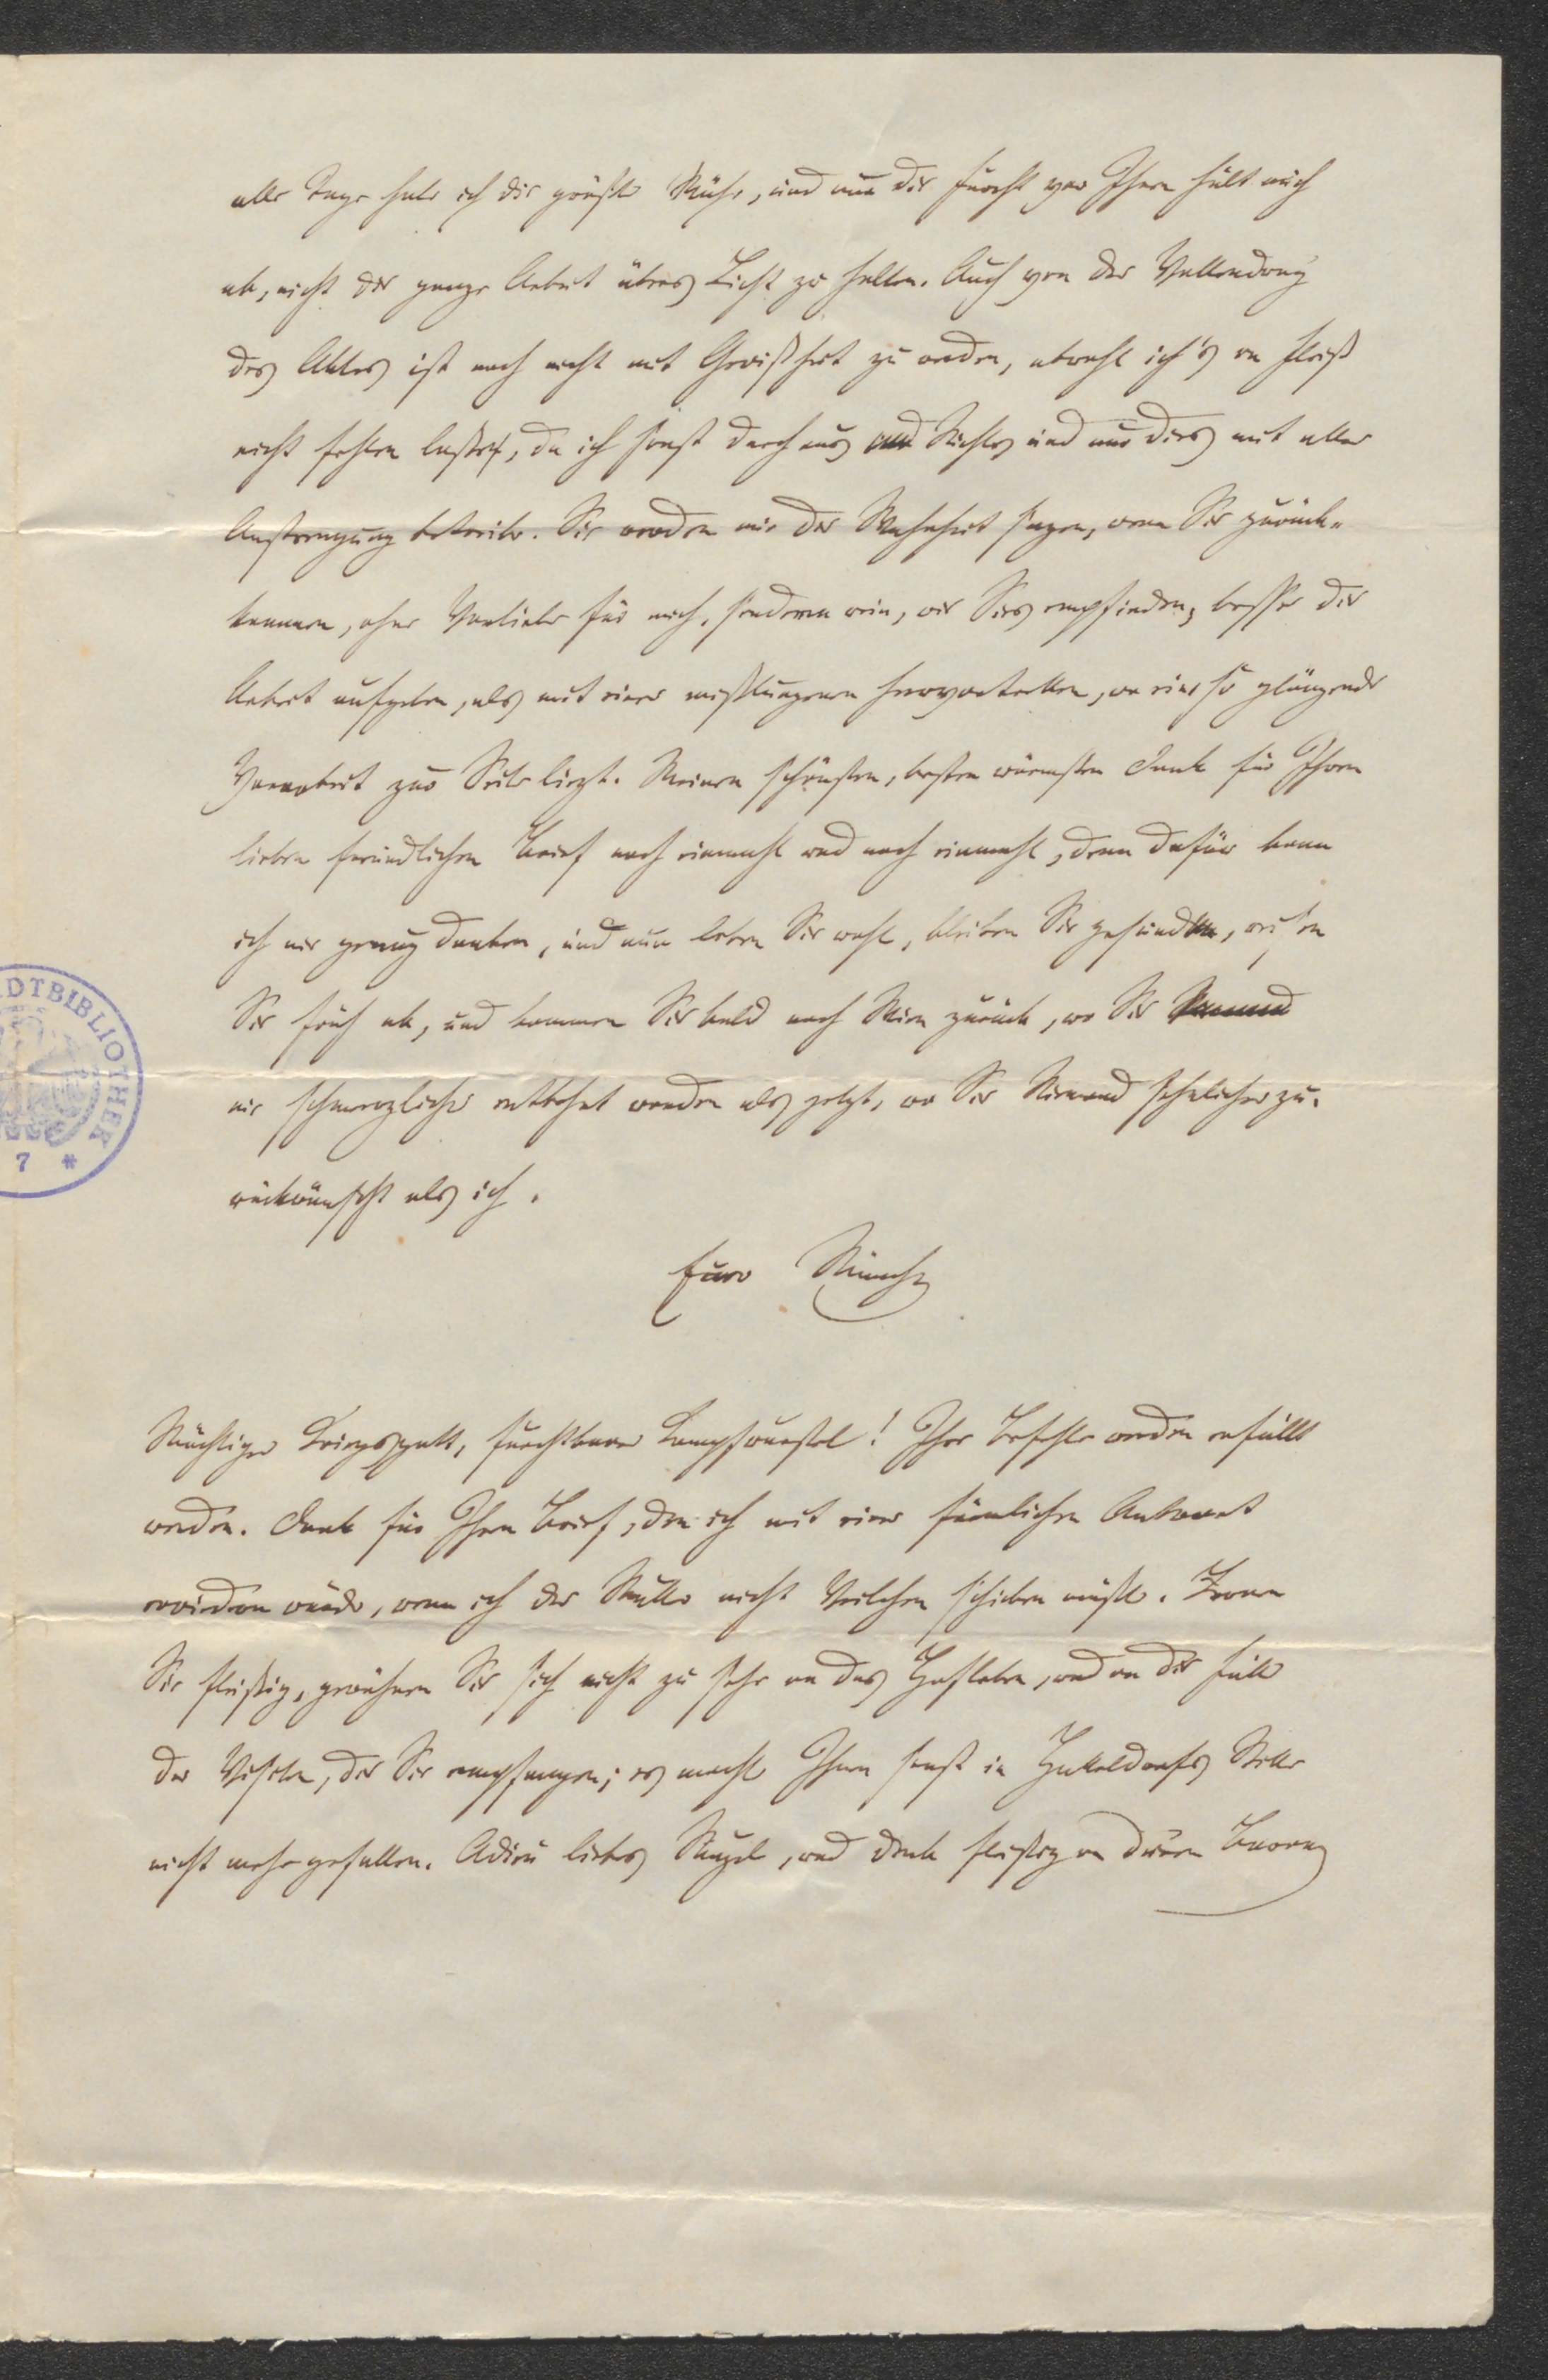 alle Tage habe ich die größte Mühe, und nur die Furcht vor Ihnen hält mich
ab, nicht die ganze Arbeit übers Licht zu halten. Auch von der Vollendung
des Aktes ist noch nicht mit Gewißheit zu reden, obwohl ich's an Fleiß
nicht fehlen laße, da ich sonst durchaus Nichts und nur dies mit aller
Anstrengung betreibe. Sie werden mir die Wahrheit sagen, wenn Sie zurück-
kommen, ohne Vorliebe für mich, sondern rein, wie Sies empfinden, besser die
Arbeit aufgeben, als mit einer mißlungenen hervortretten, wo eine so glänzende
Vorarbeit zur Seite liegt. Meinen schönsten, besten wärmsten Dank für Ihren
lieben freundlichen Brief noch einmahl und noch einmahl, denn dafür kann
ich nie genug danken, und nun leben Sie wohl, bleiben Sie gesund, reisen
Sie früh ab, und kommen Sie bald nach Wien zurück, wo Sie
nie schmerzlicher entbehrt werden als jetzt, wo Sie Niemand sehnlicher zu-
rückwünscht als ich.
Euer
Mächtiger Kriegsgott, furchtbarer Kampfwurstel! Ihre Befehle werden erfüllt
werden. Dank für Ihren Brief, den ich mit einer förmlichen Antwort
erwiedern würde, wenn ich der Mutter nicht Veilchen schicken müßte. Lernen
Sie fleißig, gewöhnen Sie sich nicht zu sehr an das Hofleben, und an die Fülle
der Visiten, die Sie empfangen; es möchte Ihnen sonst in Hütteldorfs Stille
nicht mehr gefallen. Adieu liebes, und denk fleißig an Deinen
STADTBIBLIOTHEK
7 *